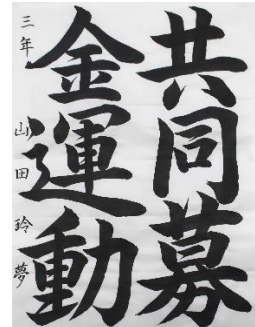 共同募
金運動
三年 山田玲夢